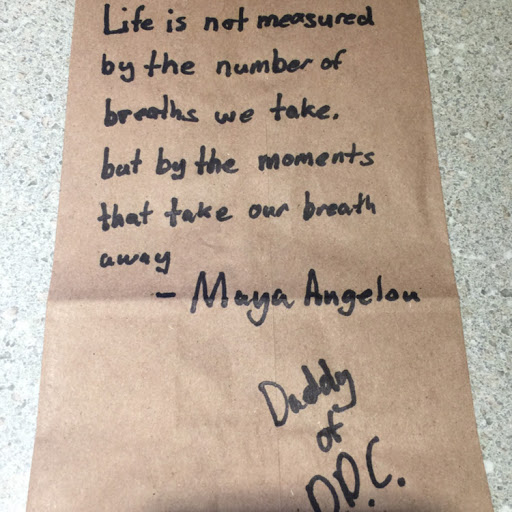 Life is not measured
by the number of
breaths we take.
but by the moments
that take our breath
away
- Maya Angelou
Daddy
of
D.D.C.